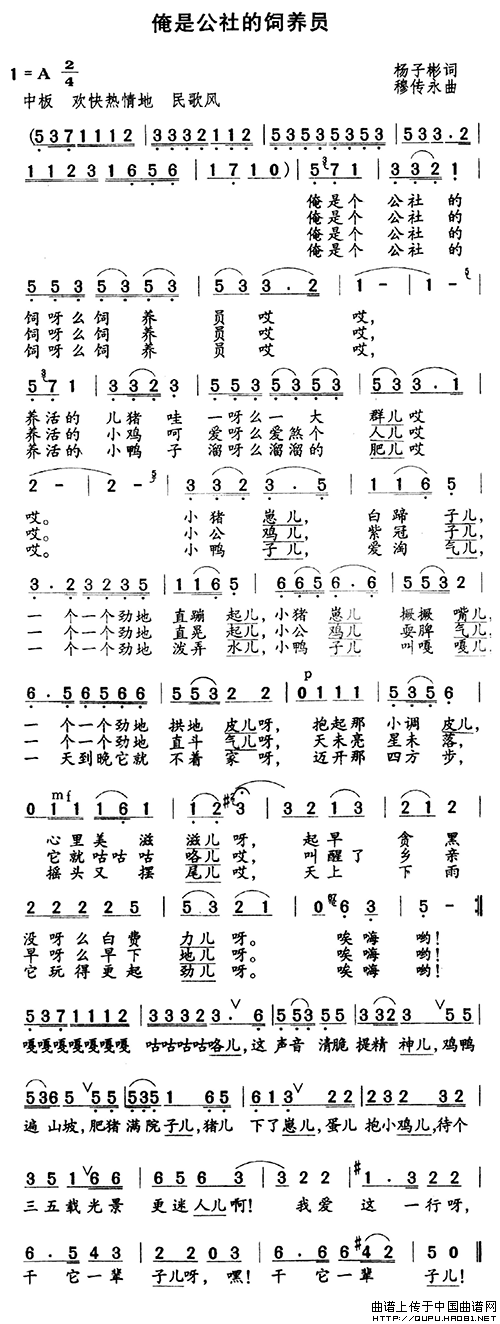 俺是公社的饲养员
1=A 2/4
杨子彬词
中板 欢快热情地 民歌风
穆传永曲
(5 3 7 1 1 1 2 | 3 3 3 2 1 1 2 | 5 3 5 3 5 3 5 3 | 5 3 3 . 2 |
1 1 2 3 1 6 5 6 | 1 7 1 0) | 5 7 1 | 3 3 2 1 |
俺是个 公社的
俺是个 公社的
俺是个 公社的
俺是个 公社的
5 5 3 5 3 5 3 | 5 3 3 . 2 | 1 - | 1 - |
饲呀么饲 养 员 哎 哎,
饲呀么饲 养 员 哎 哎,
饲呀么饲 养 员 哎 哎,
5 7 1 | 3 3 2 3 | 5 5 3 5 3 5 3 | 5 3 3 . 1 |
养活的 儿猪 哇 一呀么一 大 群儿哎
养活的 小鸡 呵 爱呀么爱煞个 人儿哎
养活的 小鸭 子 溜呀么溜溜的 肥儿哎
2 - | 2 - | 3 3 2 | 3 . 5 | 1 1 6 5 |
哎。 小猪 崽儿, 白蹄 子儿,
哎。 小公 鸡儿, 紫冠 子儿,
哎。 小鸭 子儿, 爱淘 气儿,
3 . 2 3 2 3 5 | 1 1 6 5 | 6 6 5 6 . 6 | 5 5 3 2 |
一 个一个劲地 直蹦 起儿,小猪 崽儿 撅撅 嘴儿,
一 个一个劲地 直晃 起儿,小公 鸡儿 耍脾 气儿,
一 个一个劲地 泼弄 水儿,小鸭 子儿 叫嘎 嘎儿,
p
6 . 5 6 5 6 6 | 5 5 3 2 2 | 0 1 1 1 | 5 3 5 6 |
一 个一个劲地 拱地 皮儿呀, 抱起那 小调 皮儿,
一 个一个劲地 直斗 气儿呀, 天未亮 星未 落,
一 天到晚它就 不着 家 呀, 迈开那 四方 步,
mf
0 1 1 1 6 1 | 1 2 3 | 3 2 1 3 | 2 1 2 |
心里美 滋 滋儿呀, 起早 贪黑
它就咕咕 咕 咯儿哎, 叫醒了 乡亲
摇头又 摆 尾儿哎, 天上 下雨
2 2 2 2 5 | 5 3 2 1 | 0 6 3 | 5 - :||
没呀么白费 力儿呀。 唉嗨 哟!
早呀么早下 地儿呀。 唉嗨 哟!
它玩得更起 劲儿呀。 唉嗨 哟!
5 3 7 1 1 1 1 2 | 3 3 3 5 2 3 ∨ | 3 . 6 | 5 5 3 5 5 | 3 3 2 3 ∨ 5 5 |
嘎嘎嘎嘎嘎嘎嘎 咕咕咕咕咯儿,这 声音 清脆 提精 神儿,鸡鸭
5 3 6 5 ∨ 5 5 | 5 3 5 1 6 5 | 6 1 3 ∨ 2 2 | 2 3 2 3 2 |
遍 山坡,肥猪 满院 子儿,猪儿 下了崽儿,蛋儿 抱小鸡儿,待个
3 5 1 ∨ 6 6 | 6 5 6 3 | 3 2 2 | #1 . 3 2 2 |
三五载光景 更迷 人儿啊! 我爱 这 一行呀,
6 . 5 4 3 | 2 2 0 3 | 6 . 6 6 #4 2 | 5 0 ||
干 它一辈 子儿呀,嘿! 干 它一辈 子儿!
曲谱上传于中国曲谱网
HTTP://QUPU.HAO81.NET